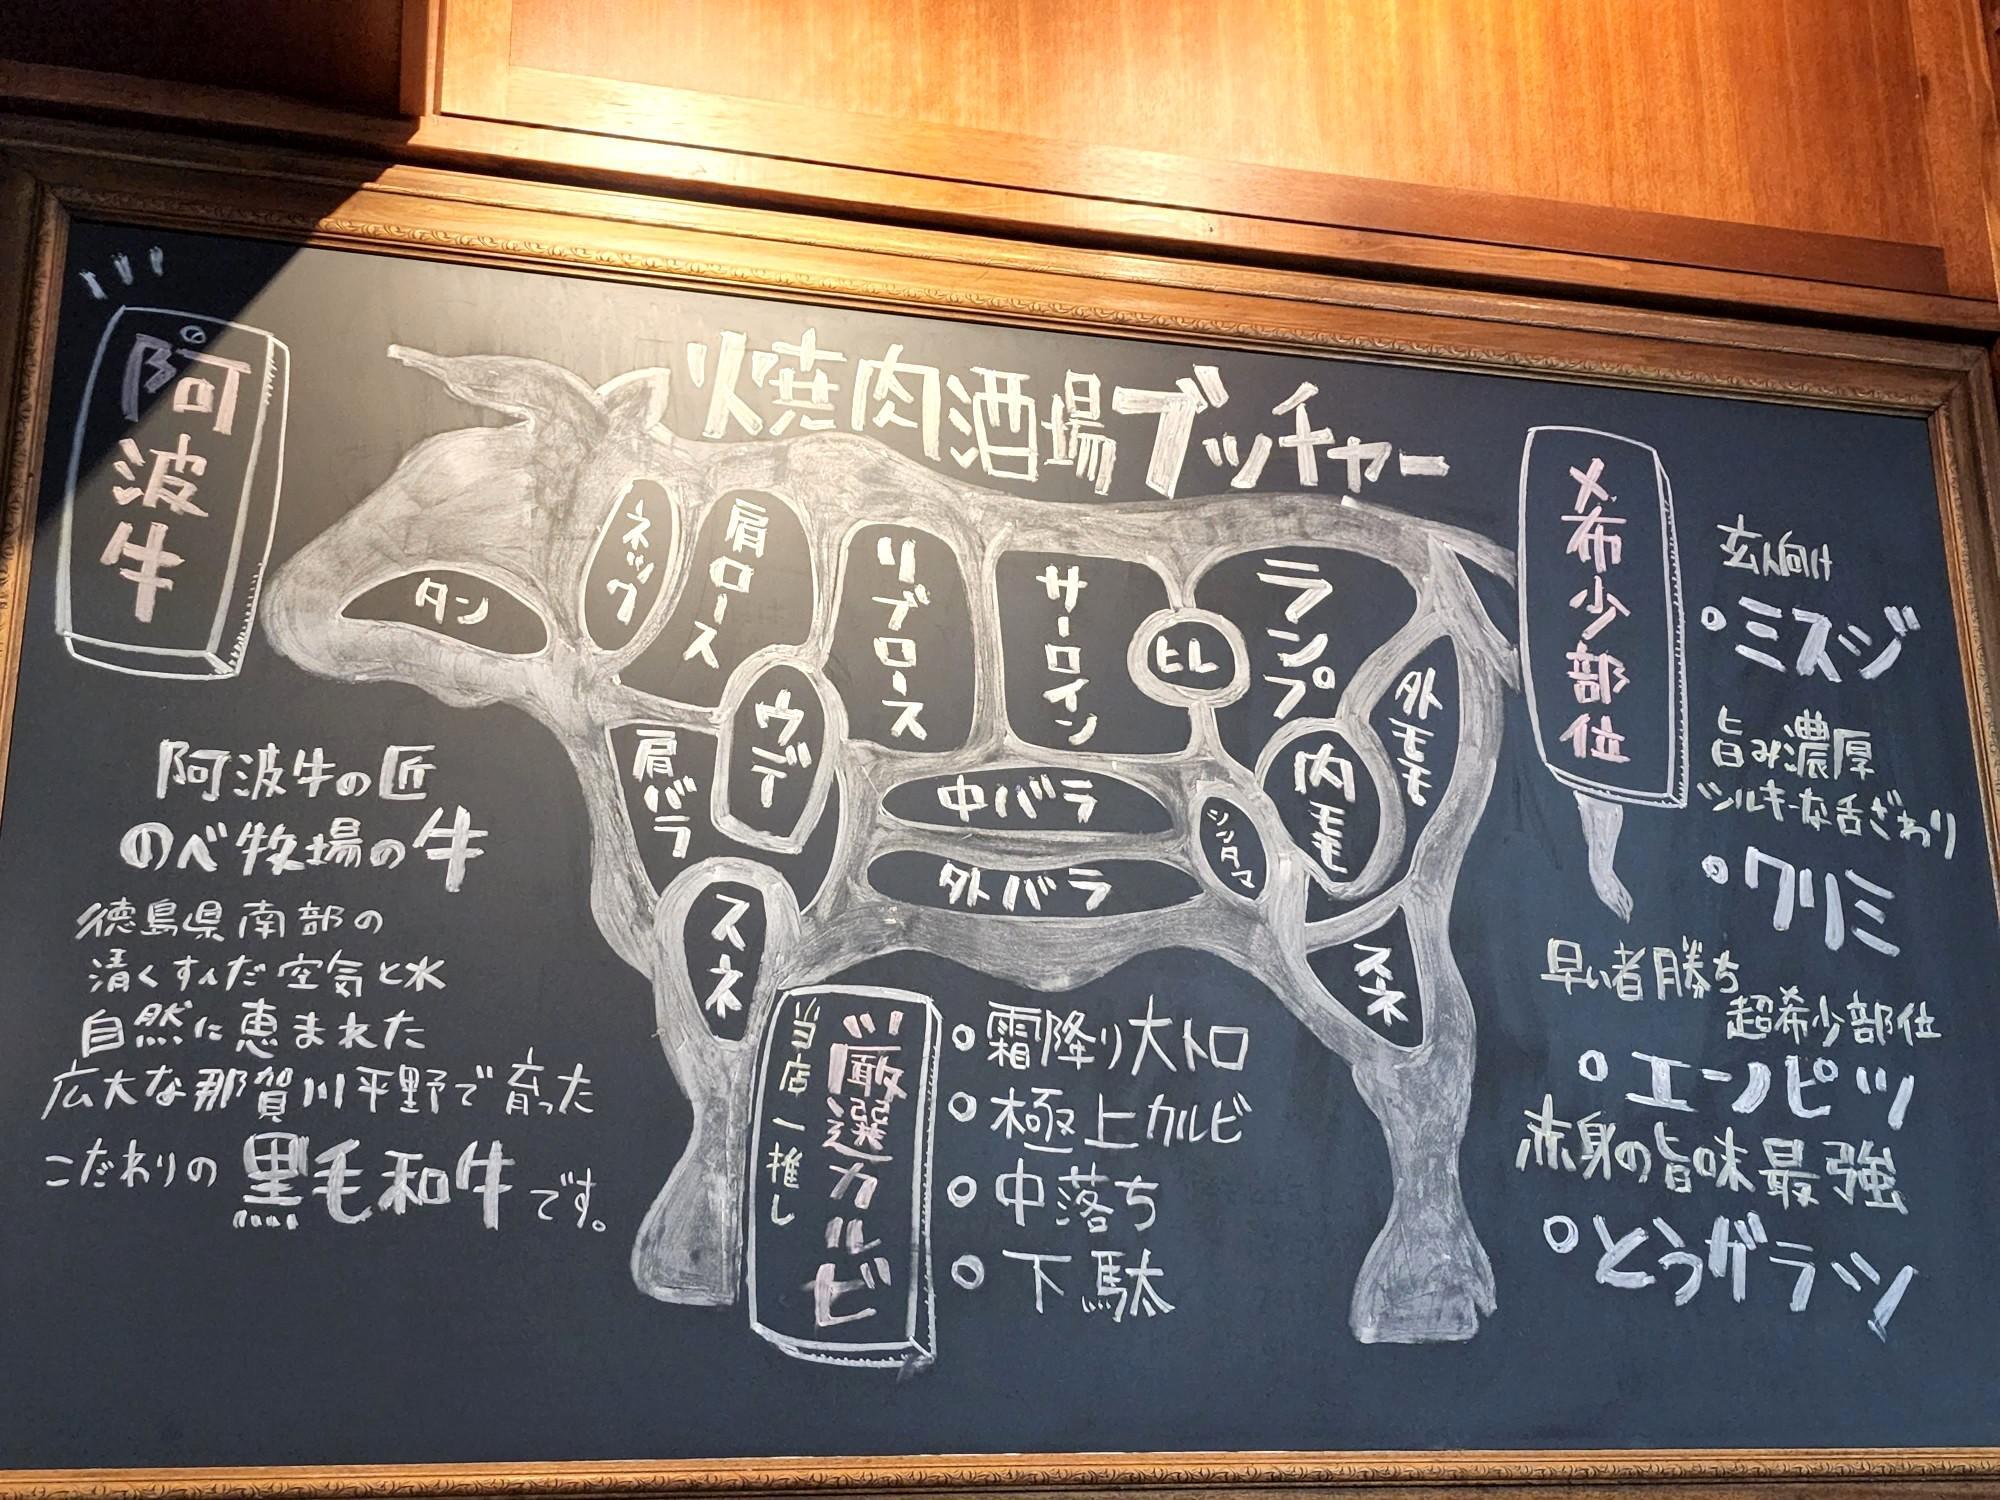 焼肉酒場ブッチャー
阿波牛
阿波牛の匠
のべ牧場の牛
徳島県南部の
清くすんだ空気と水
自然に恵まれた
広大な那賀川平野で育った
こだわりの黒毛和牛です。
タン
ネック
肩ロース
リブロース
サーロイン
ヒレ
ランプ
外モモ
内モモ
シンタマ
ウデ
肩バラ
中バラ
外バラ
スネ
スネ
当店一推し
厳選カルビ
霜降り大トロ
極上カルビ
中落ち
下駄
希少部位
玄人向け
ミスジ
旨み濃厚
シルキーな舌ざわり
クリミ
早い者勝ち
超希少部位
エンピツ
赤身の旨味最強
とうガラシ